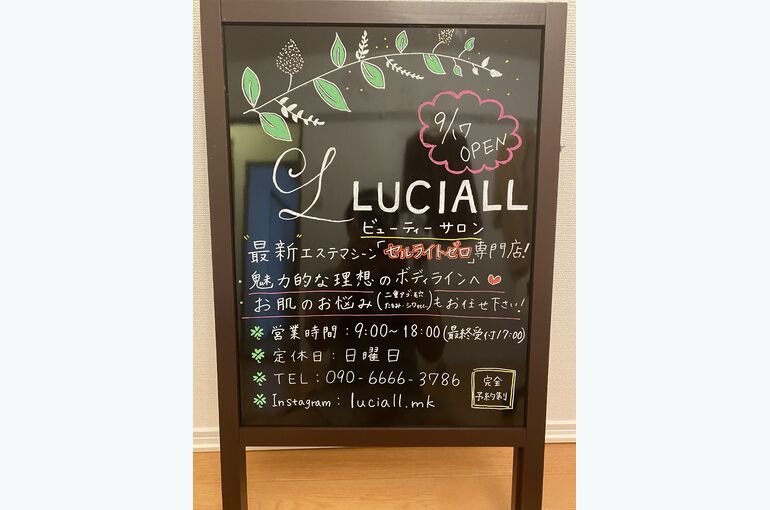 9/17
OPEN
L LUCIALL
ビューティーサロン
"最新"エステマシーン「セルライトゼロ」専門店!
・魅力的な理想のボディラインへ
・お肌のお悩み(二重アゴ・毛穴 たるみ・シワetc.)もお任せ下さい!
営業時間:9:00~18:00(最終受付17:00)
定休日:日曜日
TEL:090-6666-3786
完全
予約制
Instagram:luciall.mk